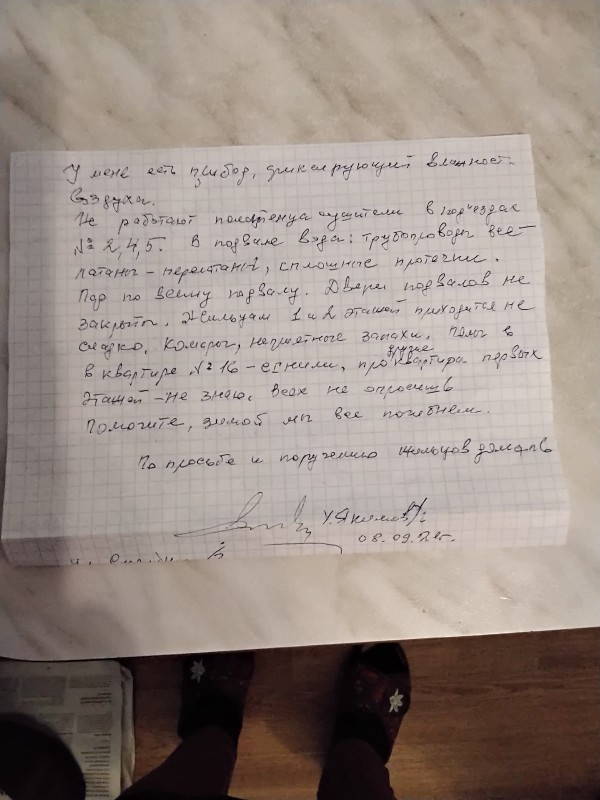 У меня есть прибор, фиксирующий влажность
воздуха.
Не работают полотенцесушители в подъездах
№ 2,4,5. В подвале вода: трубопроводы все
латаны - перелатаны, сплошные протечки.
Пар по всему подвалу. Двери подвалов не
закрыты. Жильцам 1 и 2 этажей приходится не
сладко. Комары, неприятные запахи. Полы в
в квартире № 16 - сгнили, про другие квартиры первых
этажей - не знаю, всех не опросишь
Помогите, зимой мы все погибнем.
По просьбе и поручению жильцов дома
08.09.